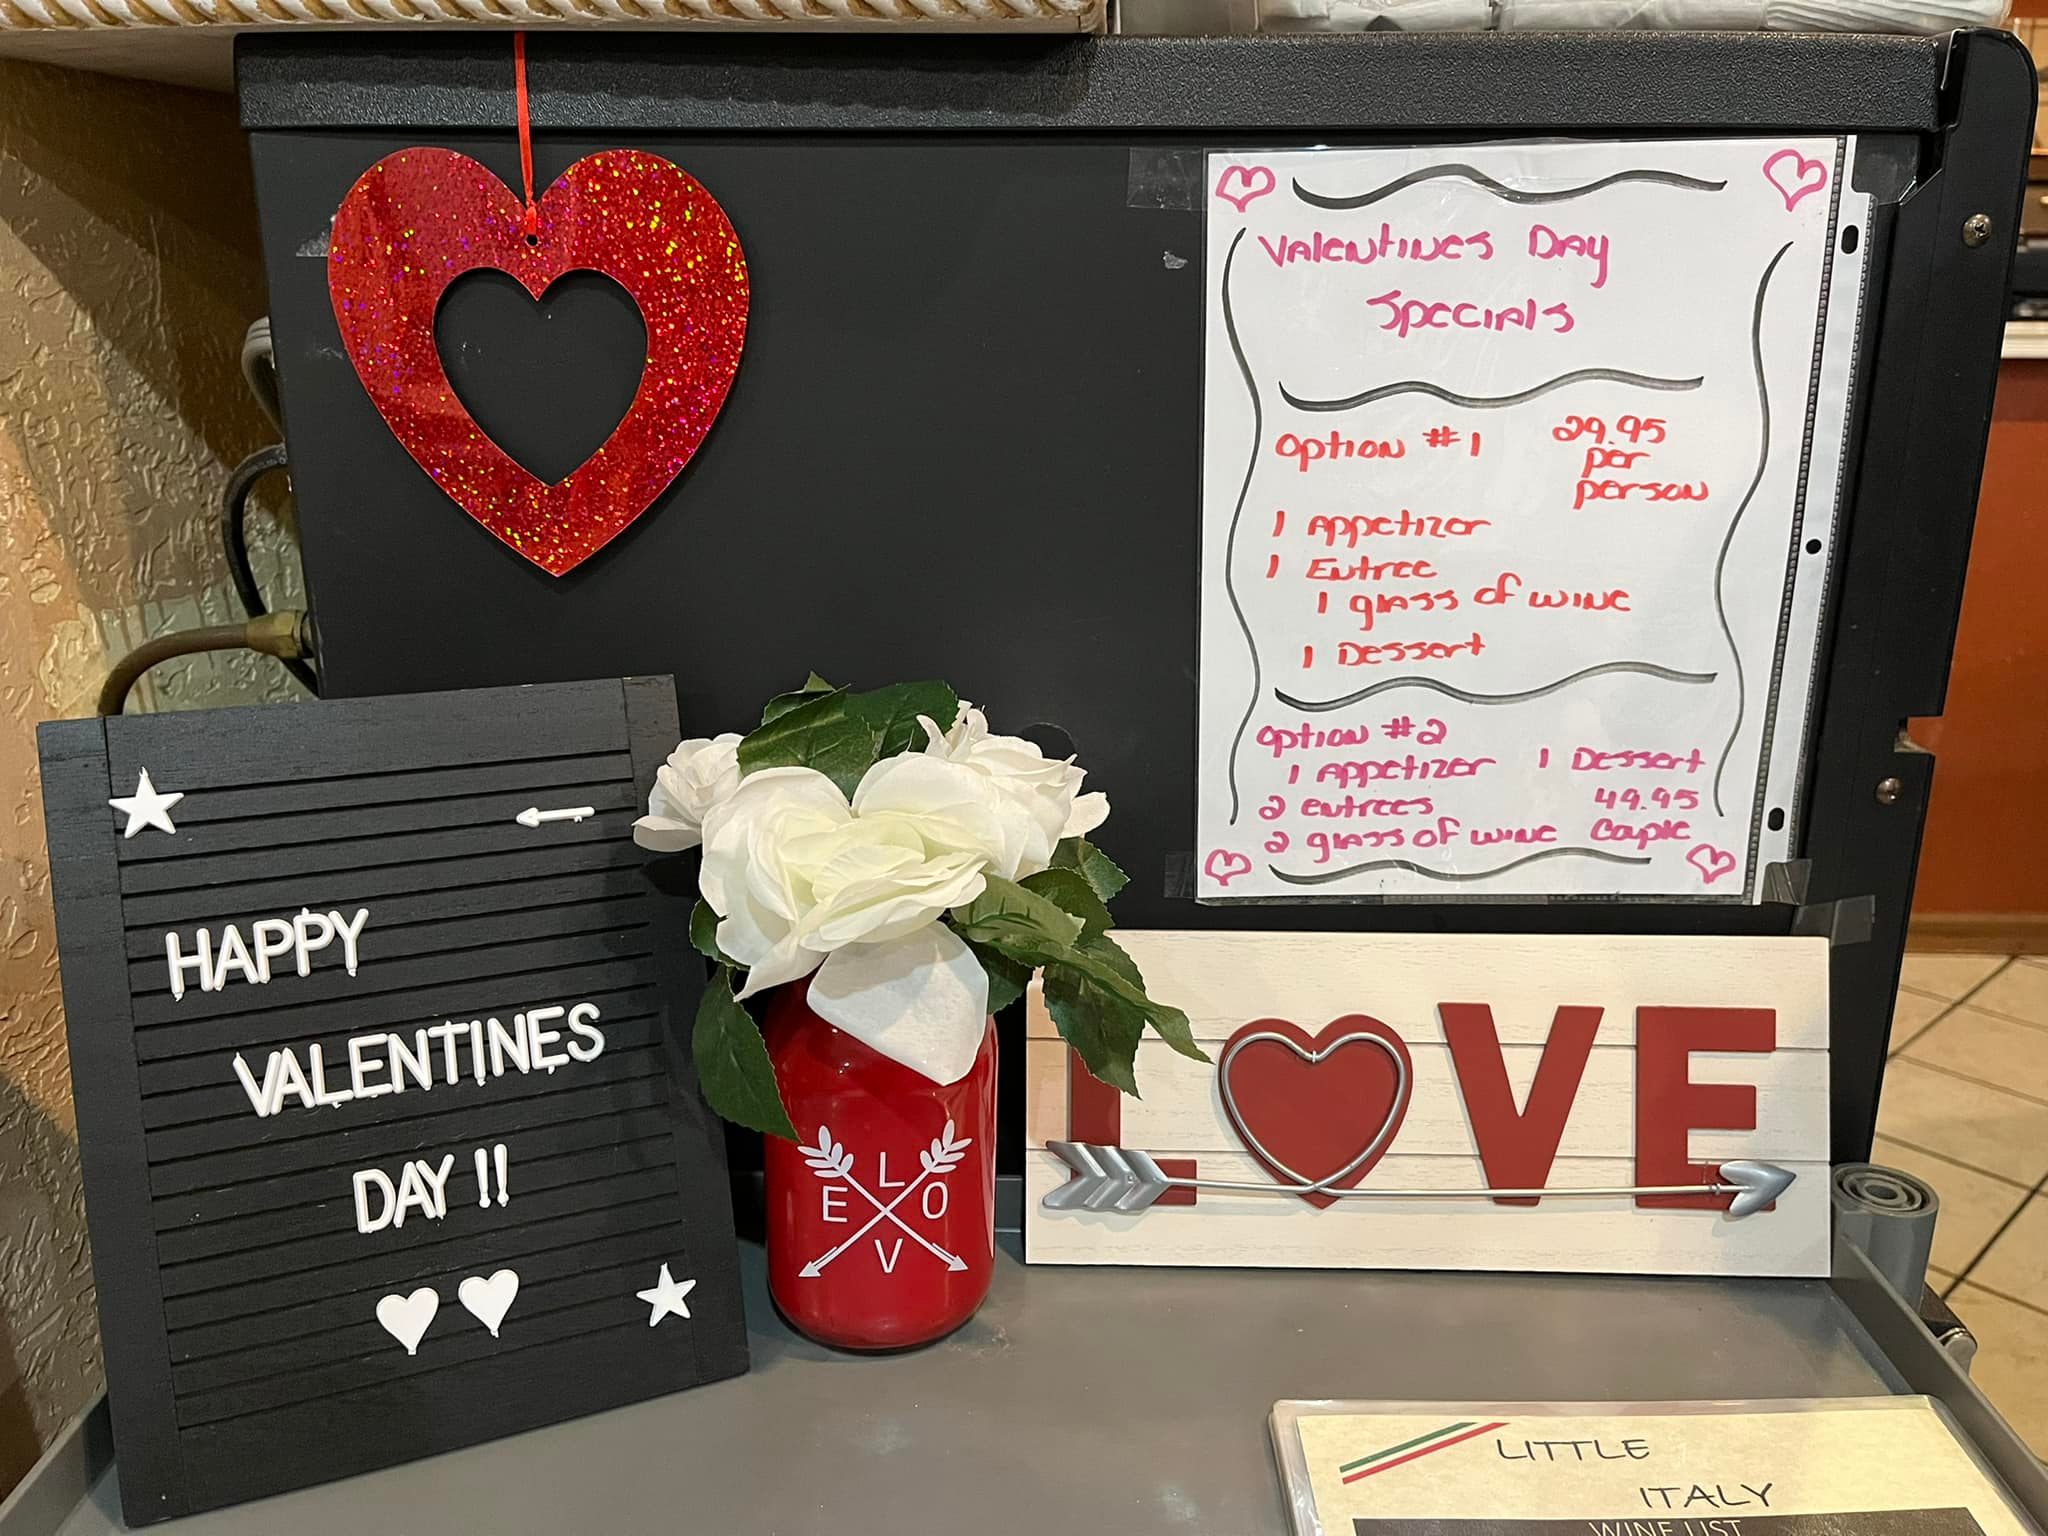 Valentines Day
Specials
Option #1 29.95
per
person
1 Appetizer
1 Entree
1 glass of wine
1 Dessert
Option #2
1 Appetizer 1 Dessert
2 entrees 49.95
2 glass of wine Couple
HAPPY
VALENTINES
DAY !!
L
E O
V
LOVE
LITTLE
ITALY
WINE LIST